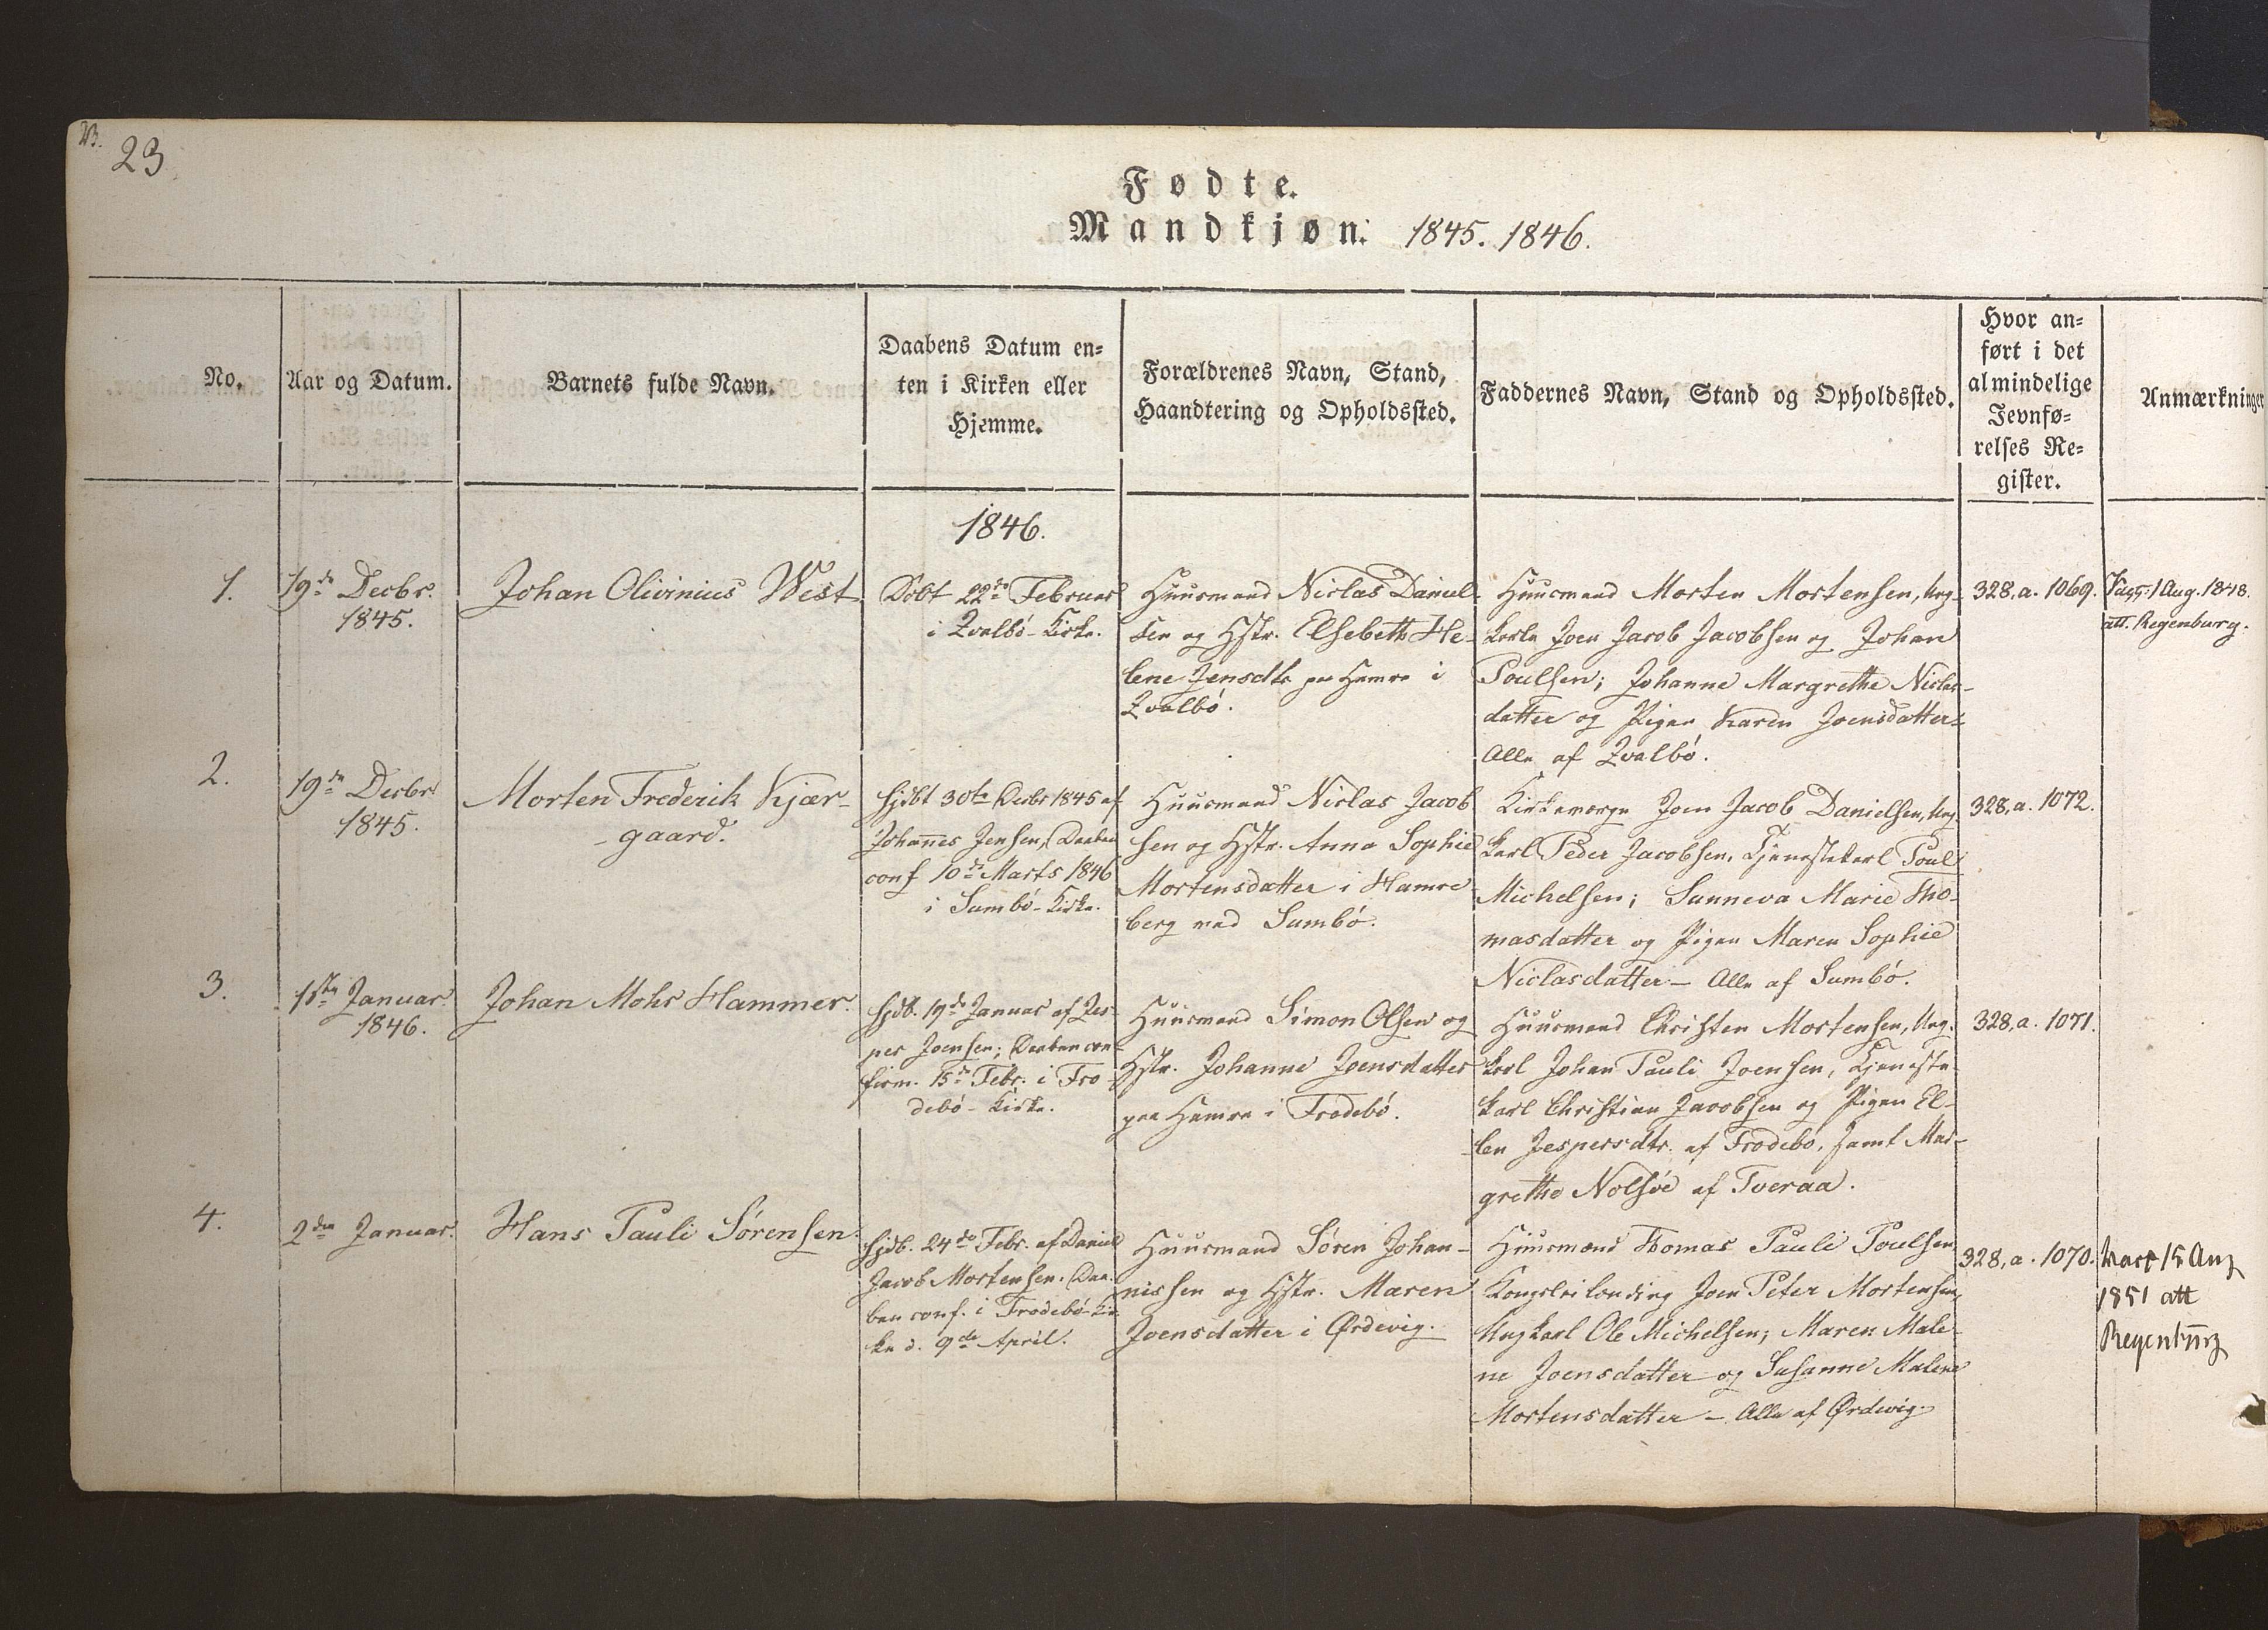 23.
23
Fødte.
Mandkjøn. 1845. 1846.
No.
Aar og Datum.
Barnets fulde Navn.
Daabens Datum en=
ten i Kirken eller
Hjemme.
Forældrenes Navn, Stand,
Haandtering og Opholdssted.
Faddernes Navn, Stand og Opholdssted.
Hvor an=
ført i det
almindelige
Jevnfø=
relses Re=
gister.
Anmærkninger
1846.
1.
19de Decbr.
1845.
Johan Olivinius West
Döbt 22de Februar
i Qvalbö-Kirke.
Huusmand Niclas Daniel-
sen og Hstr. Elsebeth He-
lene Jensdtr paa Hamre i
Qvalbö.
Huusmand Morten Mortensen, Ung-
karle Joen Jacob Jacobsen og Johan
Poulsen; Johanne Margrethe Niclas-
datter og Pigen Karen Joensdatter
Alle af Qvalbö.
328, a. 1069.
Vacc. 1 Aug. 1848.
att. Regenburg.
2.
19de Decbr.
1845.
Morten Frederik Kjær-
-gaard.
Hjdbt 30te Decbr 1845 af
Johannes Jensen, Daaben
conf 10de Marts 1846
i Sumbö-Kirke.
Huusmand Niclas Jacob
sen og Hstr. Anna Sophie
Mortensdatter i Hamre-
berg ved Sumbö.
Kirkeværge Joen Jacob Danielsen, Ung-
karl Peder Jacobsen, Tjenestekarl Poul
Michelsen; Sunneva Marie Tho-
masdatter og Pigen Maren Sophie
Niclasdatter - Alle af Sumbö.
328, a. 1072.
3.
1ste Januar
1846.
Johan Mohr Hammer.
Hjdb. 19de Januar af Jes-
per Joensen; Daaben con-
firm. 15de Febr. i Fro-
debö-Kirke.
Huusmand Simon Olsen og
Hstr. Johanne Joensdatter
paa Hamre i Frodebö.
Huusmand Christen Mortensen, Ung-
karl Johan Pauli Joensen, Tjeneste-
karl Christian Jacobsen og Pigen El-
len Jespersdtr. af Frodebö, samt Mar-
grethe Nolsöe af Tveraa.
328, a. 1071.
4.
2den Januar.
Hans Pauli Sörensen
Hjdb. 24de Febr. af Daniel
Jacob Mortensen. Daa-
ben conf. i Frodebö-Kir-
ke d. 9de April.
Huusmand Sören Johan-
nissen og Hstr. Maren
Joensdatter i Ørdevig.
Huusmænd Thomas Pauli Poulsen
Joen Peter Mortensen,
Ungkarl Ole Michelsen; Maren Male-
ne Joensdatter og Susanne Malene
Mortensdatter - Alle af Ørdevig.
328, a. 1070.
Vacc 15 Aug
1851 att
Regenburg